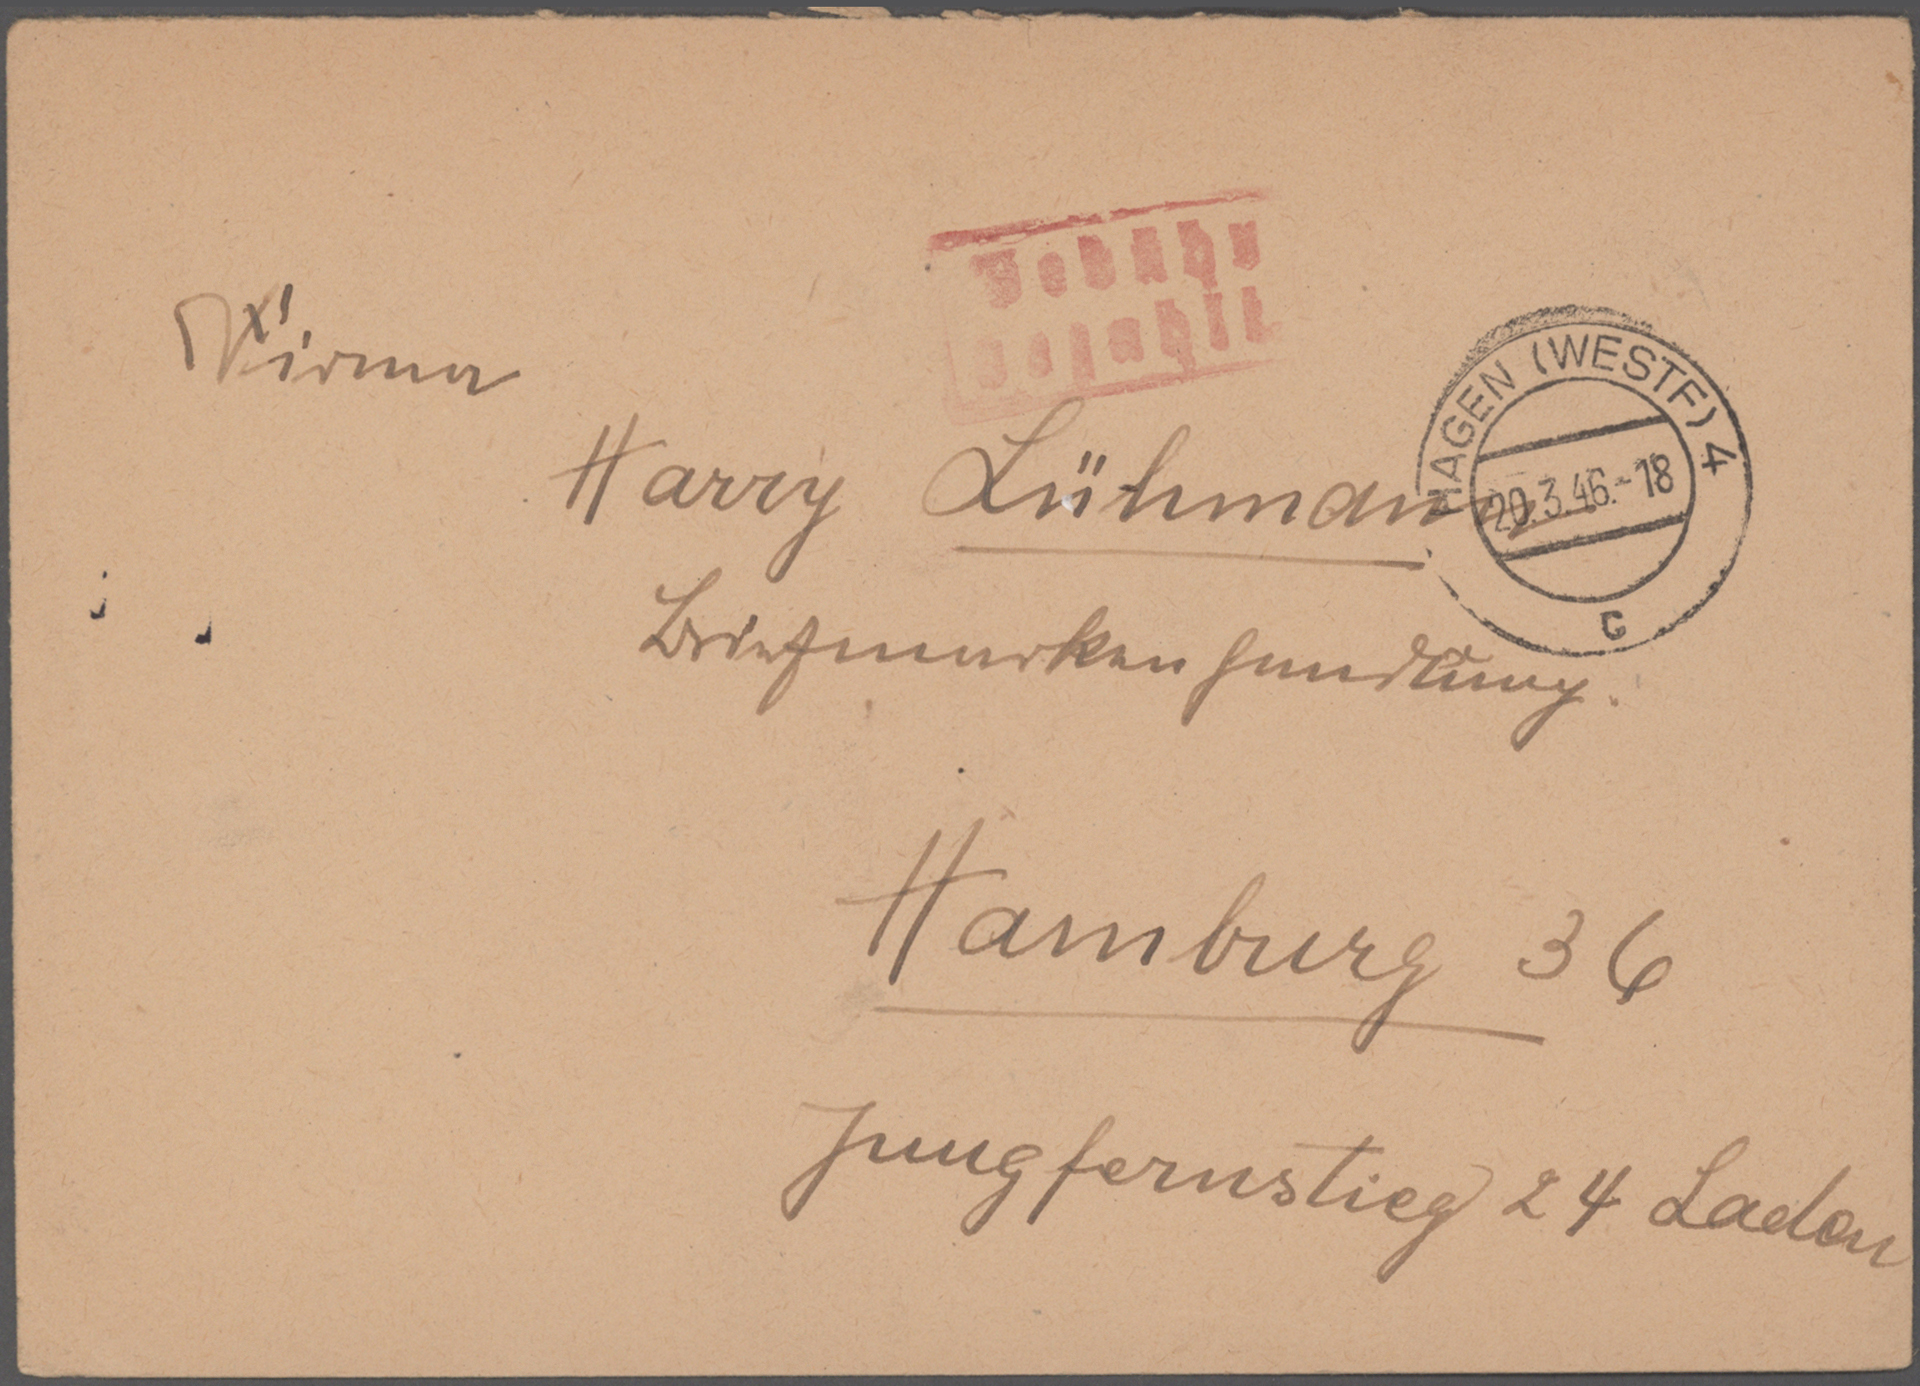 Gebühr
bezahlt
HAGEN (WESTF) 4
20.3.46.-18
c
Firma
Harry Lühmann
Briefmarkenhandlung.
Hamburg 36
Jungfernstieg 24 Laden